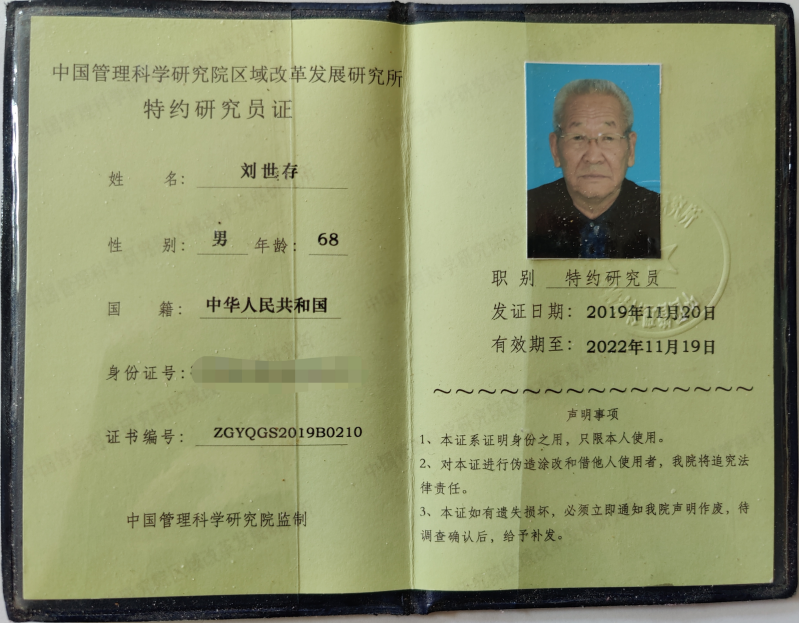 中国管理科学研究院区域改革发展研究所
特约研究员证
姓 名: 刘世存
性 别: 男 年龄: 68
国 籍: 中华人民共和国
身份证号:
证书编号: ZGYQGS2019B0210
中国管理科学研究院监制
职 别 特约研究员
发证日期: 2019年11月20日
有效期至: 2022年11月19日
声明事项
1、本证系证明身份之用，只限本人使用。
2、对本证进行伪造涂改和借他人使用者，我院将追究法
律责任。
3、本证如有遗失损坏，必须立即通知我院声明作废，待
调查确认后，给予补发。